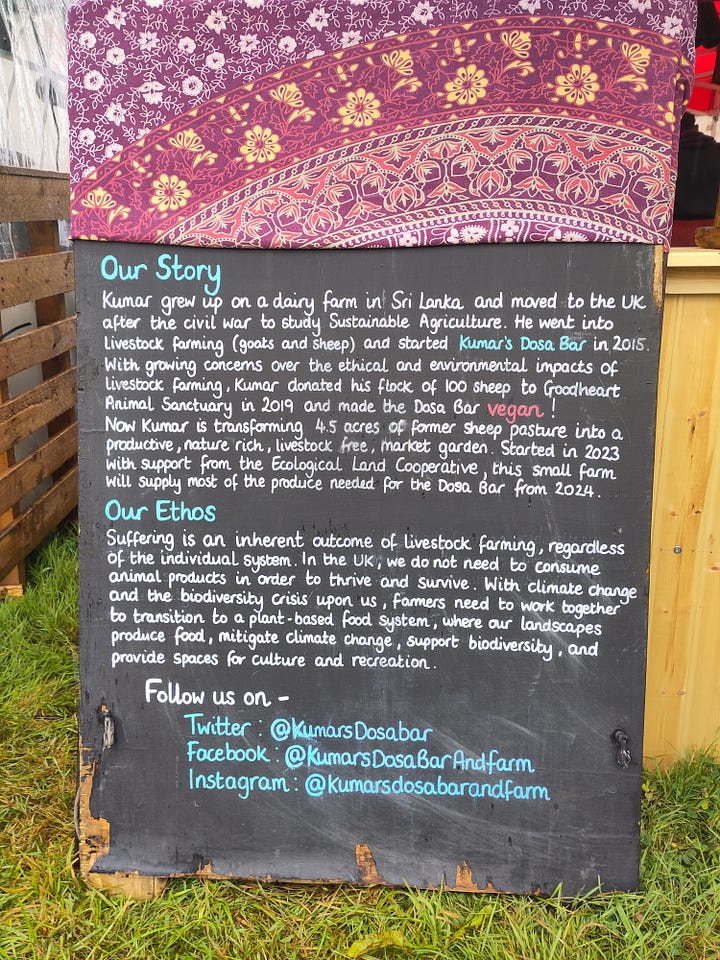 Our Story
Kumar grew up on a dairy farm in Sri Lanka and moved to the UK
after the civil war to study Sustainable Agriculture. He went into
livestock farming (goats and sheep) and started Kumar's Dosa Bar in 2015.
With growing concerns over the ethical and environmental impacts of
livestock farming, Kumar donated his flock of 100 sheep to Goodheart
Animal Sanctuary in 2019 and made the Dosa Bar vegan!
Now Kumar is transforming 4.5 acres of former sheep pasture into a
productive, nature rich, livestock free, market garden. Started in 2023
with support from the Ecological Land Cooperative, this small farm
will supply most of the produce needed for the Dosa Bar from 2024.
Our Ethos
Suffering is an inherent outcome of livestock farming, regardless
of the individual system. In the UK, we do not need to consume
animal products in order to thrive and survive. With climate change
and the biodiversity crisis upon us, farmers need to work together
to transition to a plant-based food system, where our landscapes
produce food, mitigate climate change, support biodiversity, and
provide spaces for culture and recreation.
Follow us on -
Twitter: @KumarsDosabar
Facebook: @KumarsDosaBarAndfarm
Instagram: @kumarsdosabarandfarm